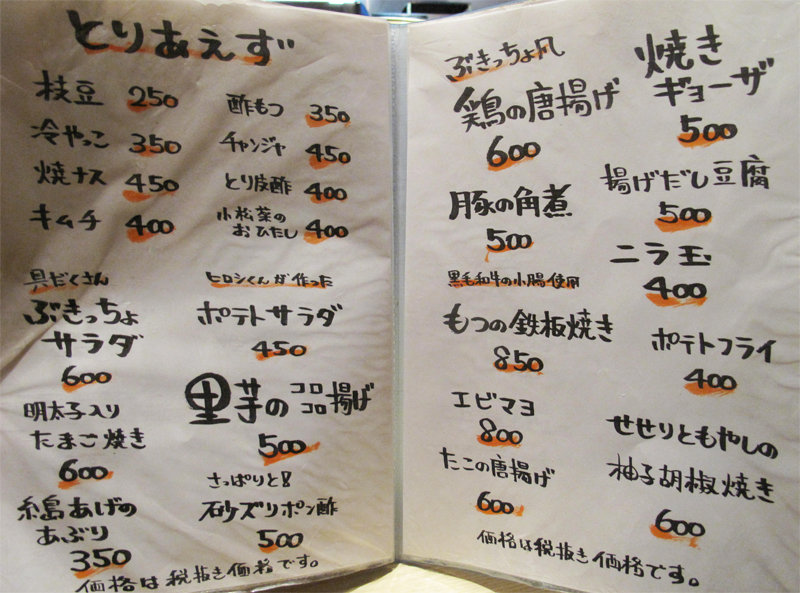 とりあえず
枝豆 250
冷やっこ 350
焼ナス 450
キムチ 400
酢もつ 350
チャンジャ 450
とり皮酢 400
小松菜の
おひたし 400
具だくさん
ぶきっちょ
サラダ
600
明太子入り
たまご焼き
600
糸島あげの
あぶり
350
ヒロシくんが作った
ポテトサラダ
450
里芋のコロコロ揚げ
500
さっぱりと!!
砂ズリポン酢
500
価格は税抜き価格です。
ぶきっちょ風
鶏の唐揚げ
600
豚の角煮
500
黒毛和牛の小腸使用
もつの鉄板焼き
850
エビマヨ
800
たこの唐揚げ
600
焼き
ギョーザ
500
揚げだし豆腐
500
ニラ玉
400
ポテトフライ
400
せせりともやしの
柚子胡椒焼き
600
価格は税抜き価格です。